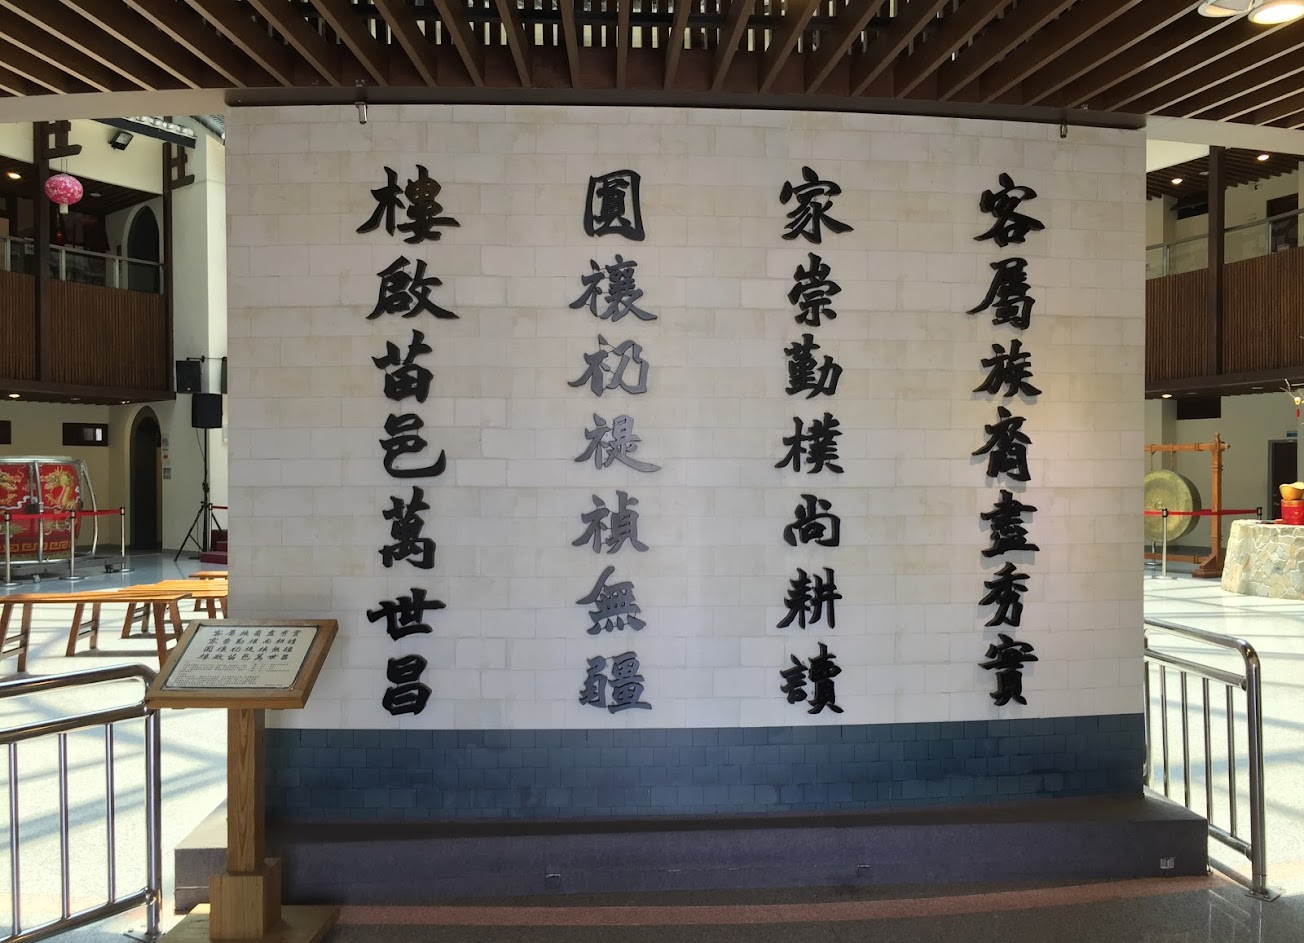 客屬族裔盡秀實
家崇勤樸尚耕讀
圓禳礽禔禎無疆
樓啟苗邑萬世昌
客屬族裔盡秀實
家崇勤樸尚耕讀
圓禳礽禔禎無疆
樓啟苗邑萬世昌